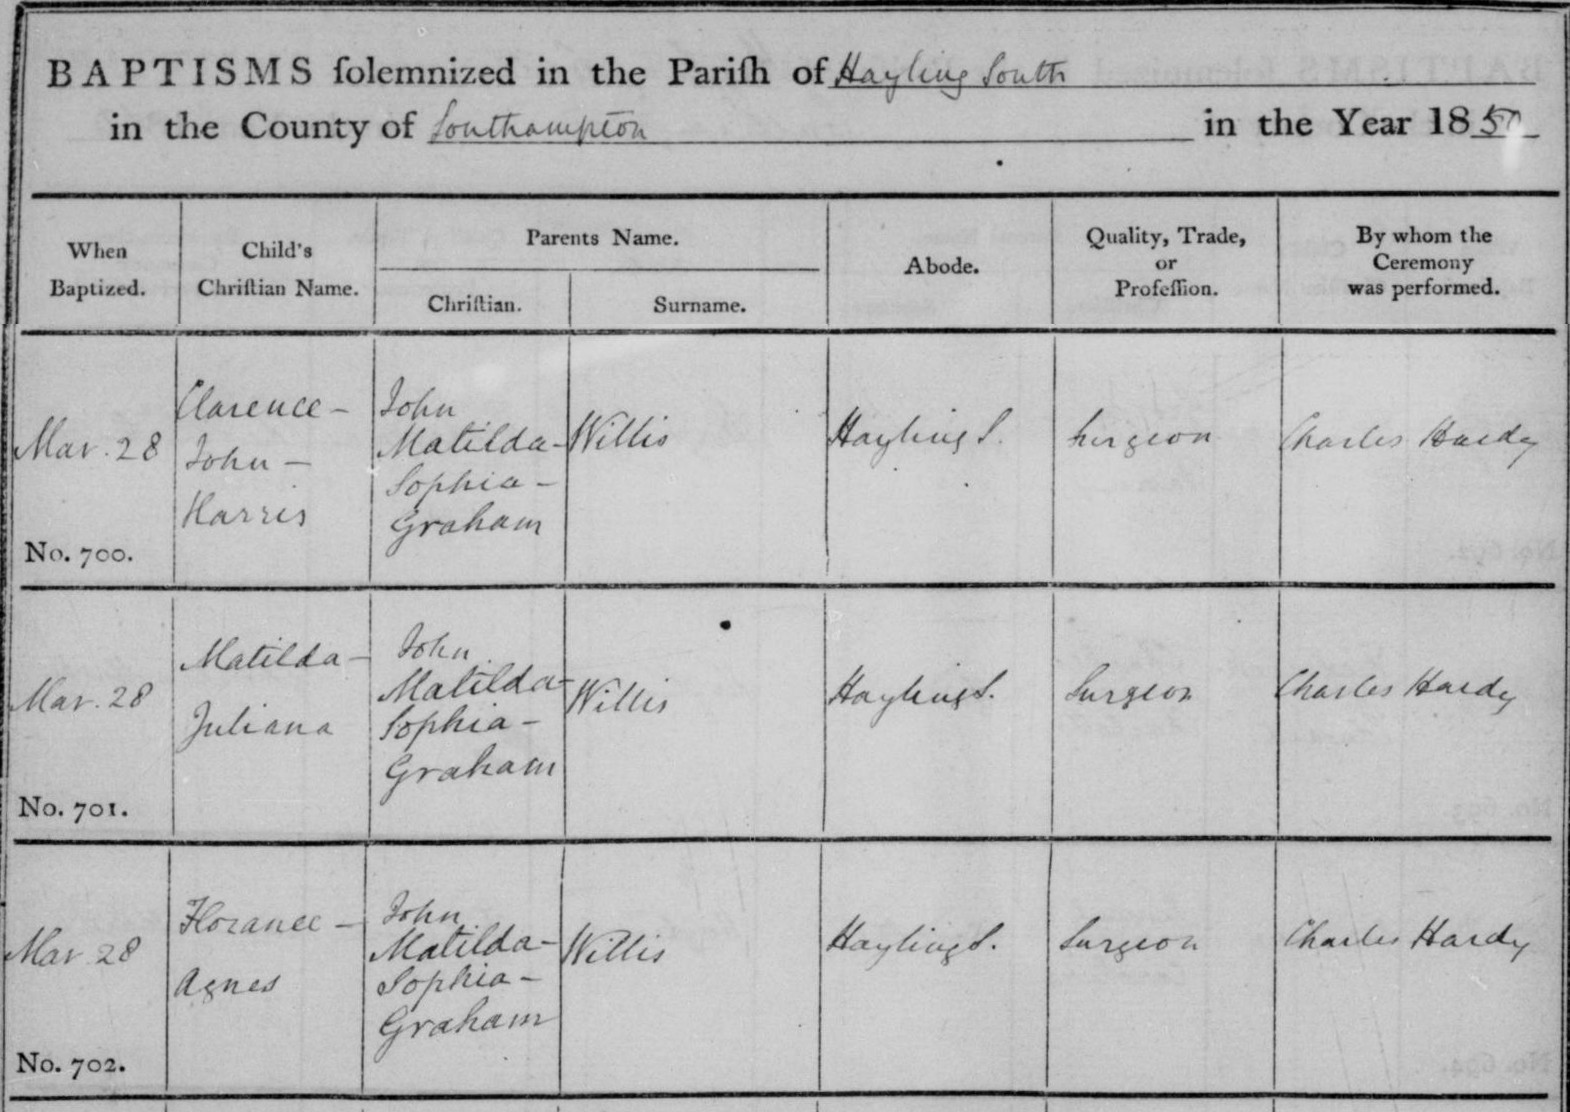 BAPTISMS solemnized in the Parish of Hayling South
in the County of Southampton in the Year 1850
When Baptized.
Child's Christian Name.
Parents Name.
Christian.
Surname.
Abode.
Quality, Trade, or Profession.
By whom the Ceremony was performed.
Mar. 28
No. 700.
Clarence -
John -
Harris
John
Matilda -
Sophia -
Graham
Willis
Hayling S.
Surgeon
Charles Hardy
Mar. 28
No. 701.
Matilda -
Juliana
John
Matilda -
Sophia -
Graham
Willis
Hayling S.
Surgeon
Charles Hardy
Mar. 28
No. 702.
Florance -
Agnes
John
Matilda -
Sophia -
Graham
Willis
Hayling S.
Surgeon
Charles Hardy